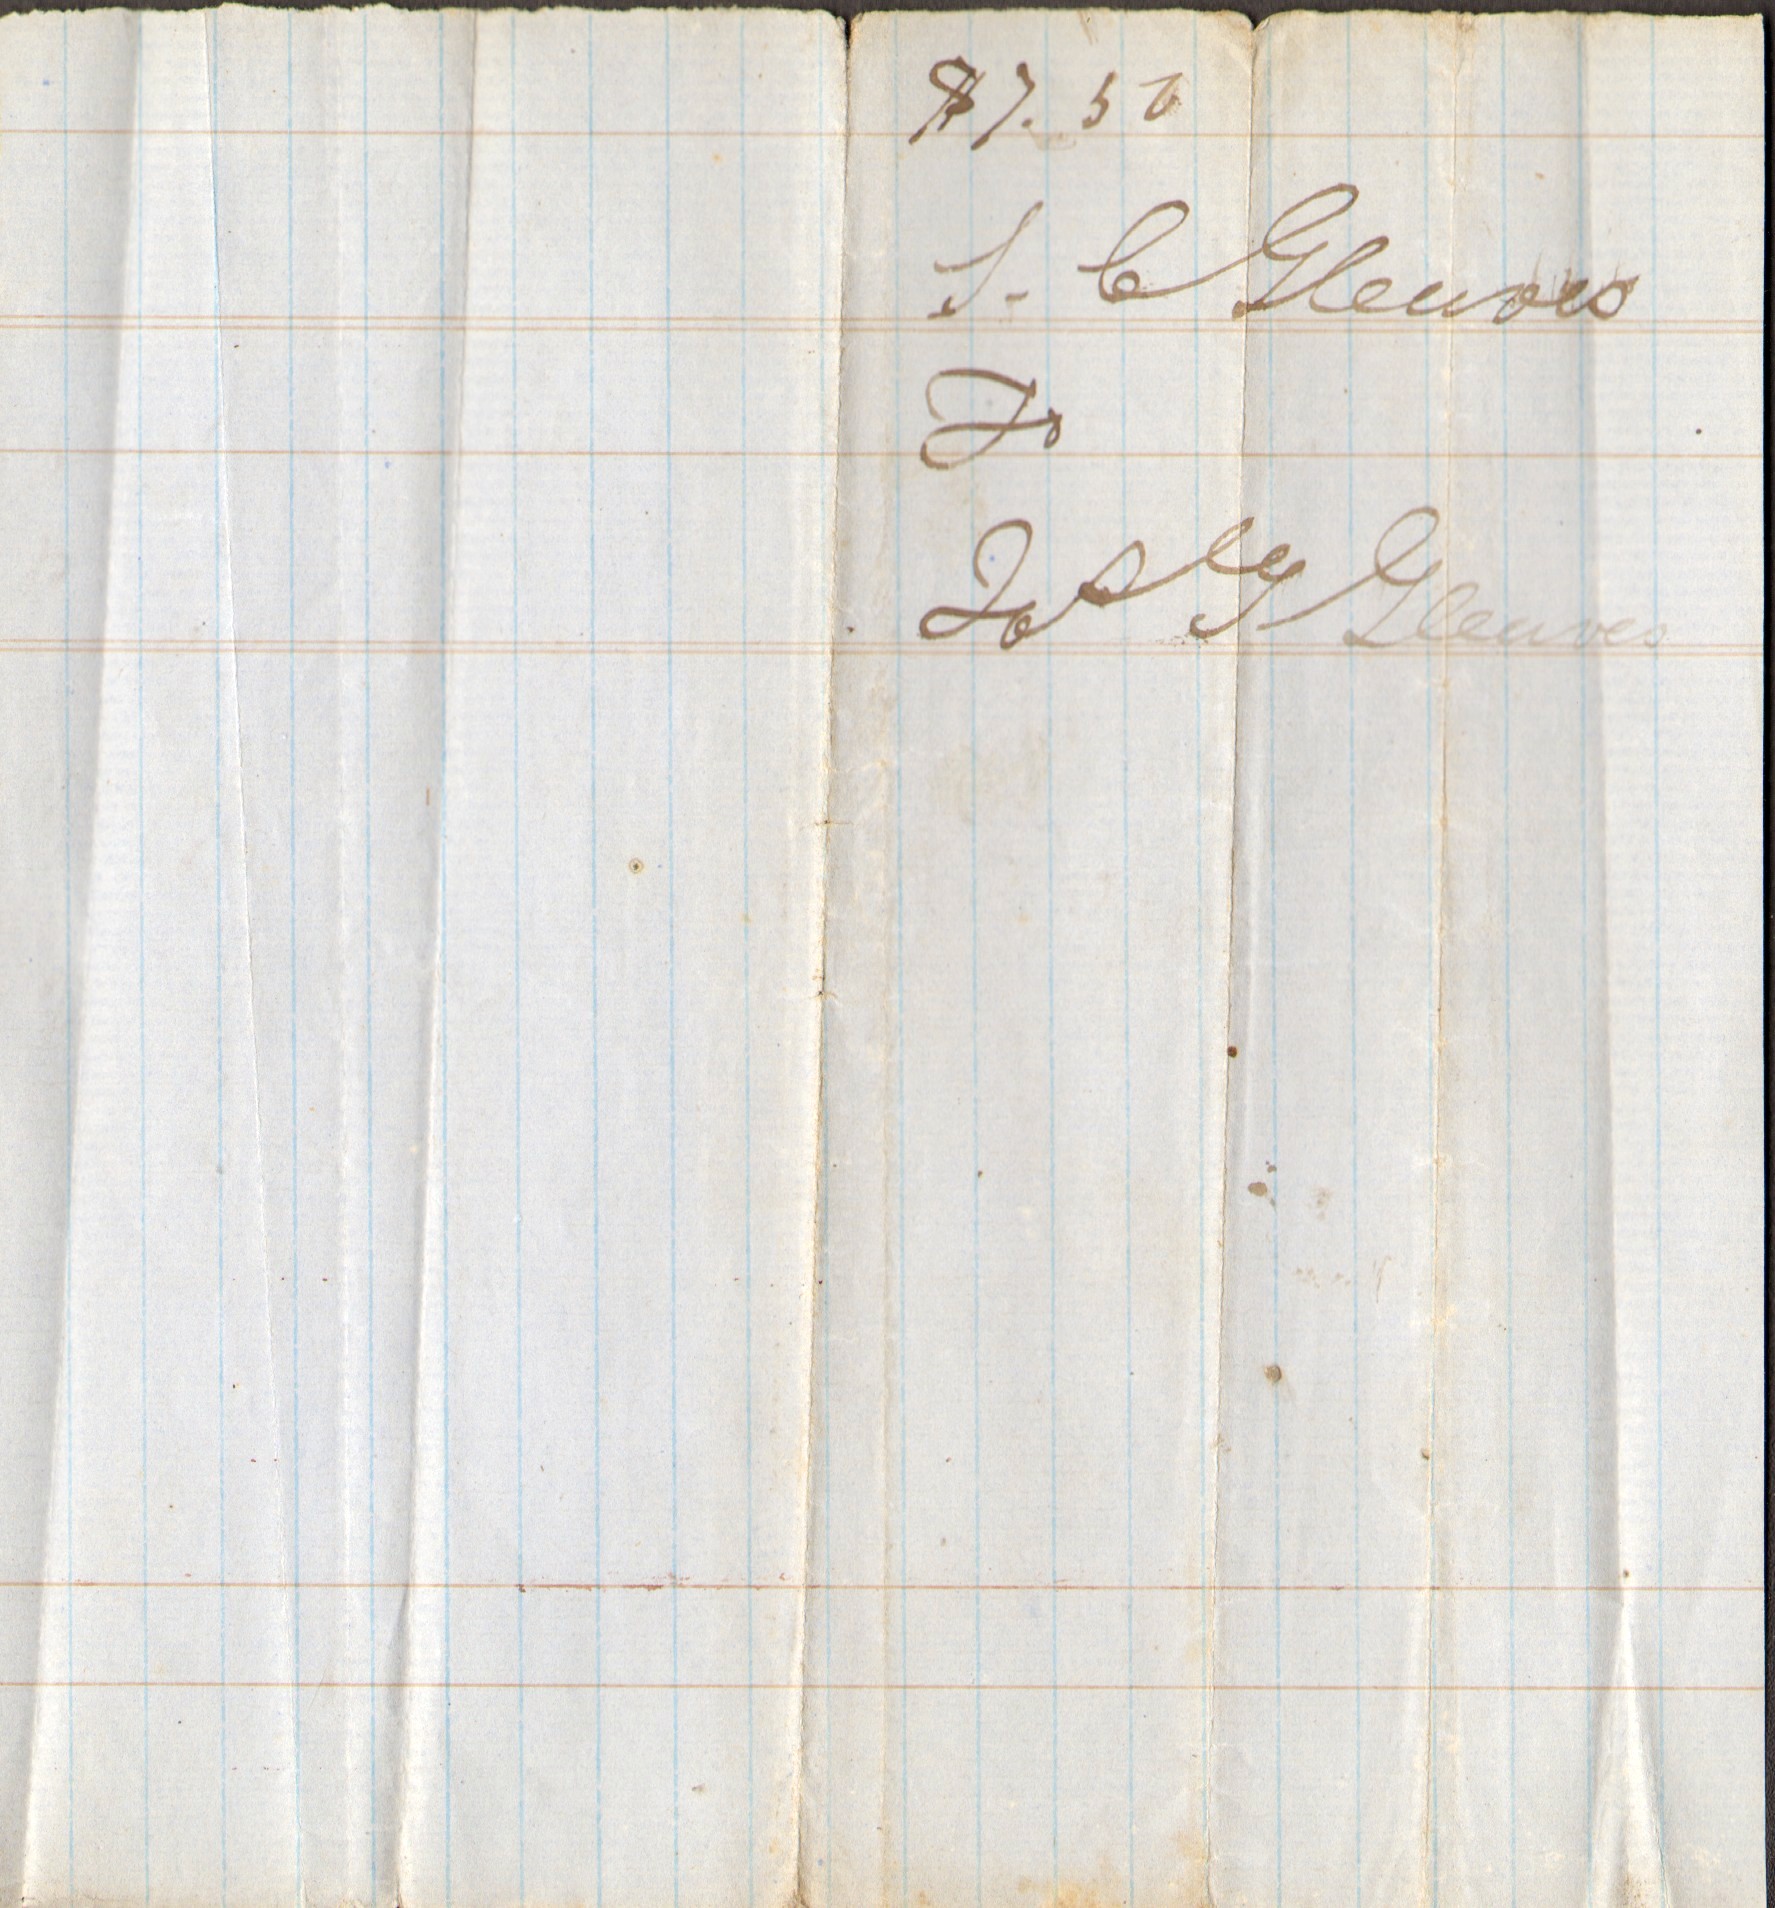 $7.50
S. C Gleaves
To
Gleaves